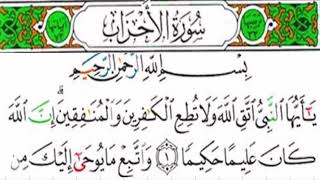 سورة الأحزاب
بسم الله الرحمن الرحيم
يَٰٓأَيُّهَا ٱلنَّبِىُّ ٱتَّقِ ٱللَّهَ وَلَا تُطِعِ ٱلْكَٰفِرِينَ وَٱلْمُنَٰفِقِينَ ۗ إِنَّ ٱللَّهَ
كَانَ عَلِيمًا حَكِيمًا ١ وَٱتَّبِعْ مَا يُوحَىٰٓ إِلَيْكَ مِن